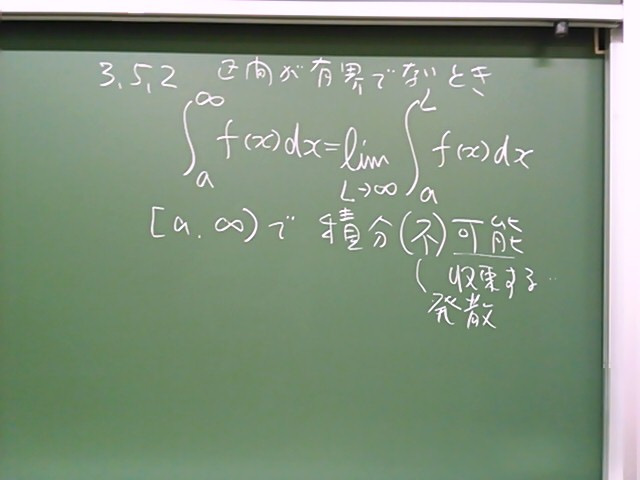 3.5.2 区間が有界でないとき
∫_a^∞ f(x)dx = lim_{L→∞} ∫_a^L f(x)dx
[a, ∞)で 積分(不)可能
( 収束する…
発散